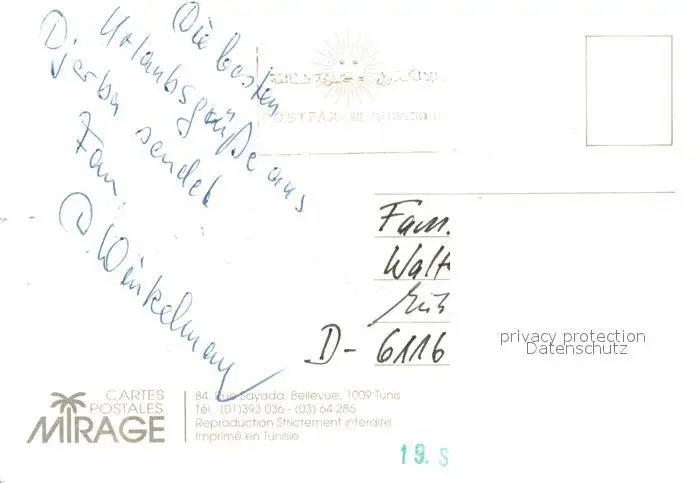 Die besten
Urlaubsgrüße aus
Djerba sendet
Fam.
D. Winkelmann
Fam.
Walt
D- 6116
privacy protection
Datenschutz
CARTES
POSTALES
MIRAGE
84, Rue Sayada, Bellevue, 1009 Tunis
Tél. (01)393 036 - (03) 64 286
Reproduction Strictement interdite
Imprimé en Tunisie
19. S